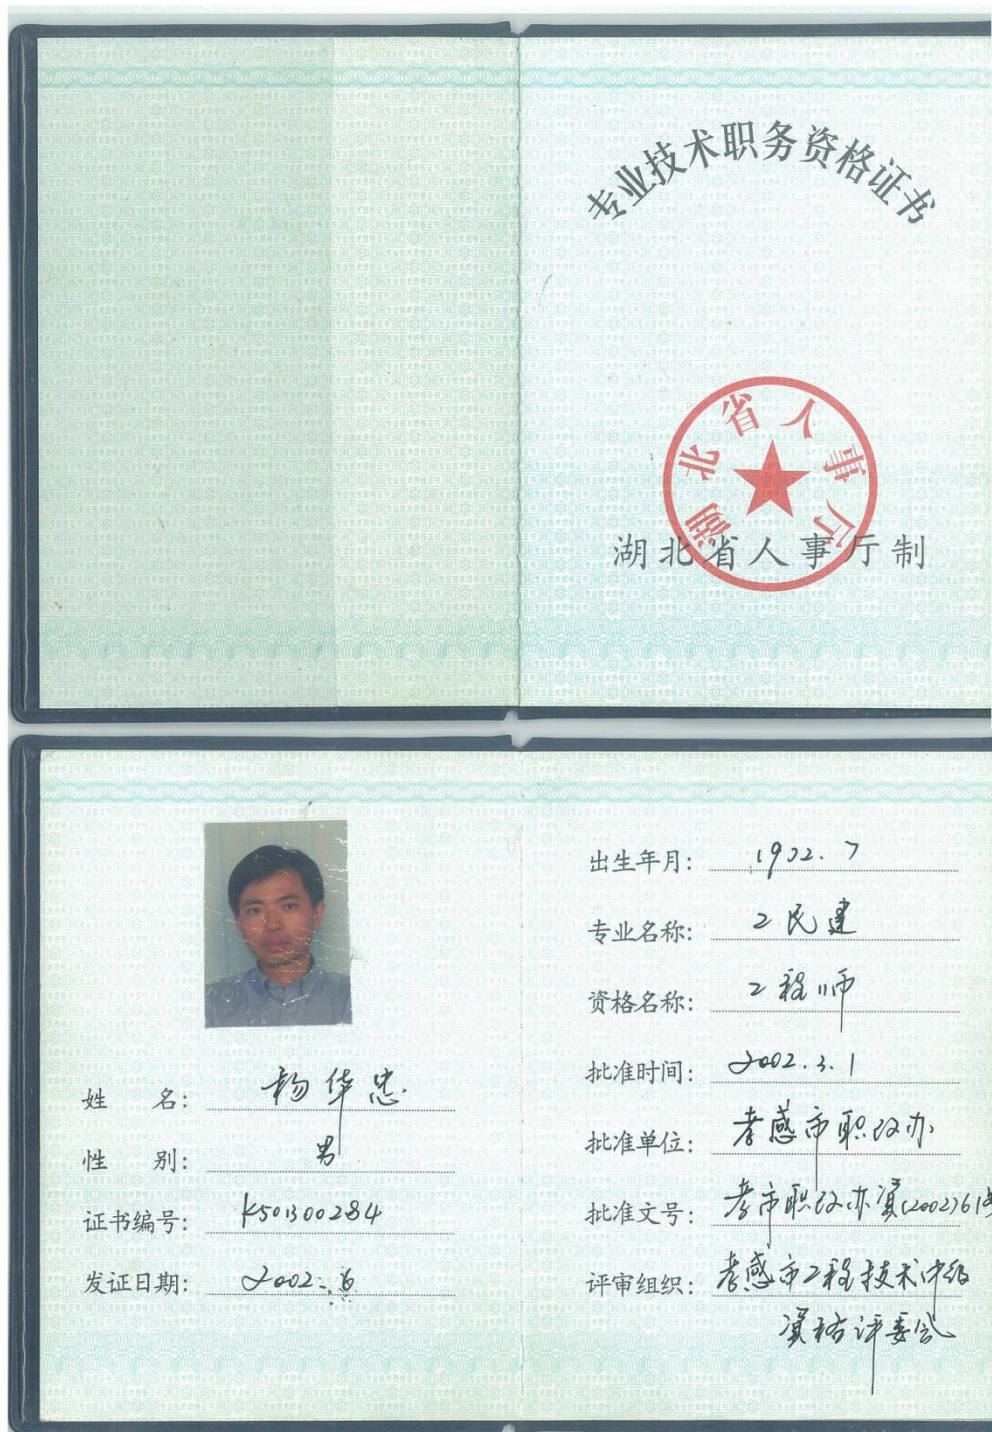 专业技术职务资格证书
湖北省人事厅
湖北省人事厅制
姓 名: 杨华忠
性 别: 男
证书编号: K501300284
发证日期: 2002.6
出生年月: 1972.7
专业名称: 工民建
资格名称: 工程师
批准时间: 2002.3.1
批准单位: 孝感市职改办
批准文号: 孝市职改办资(2002)61号
评审组织: 孝感市工程技术中级
资格评委会